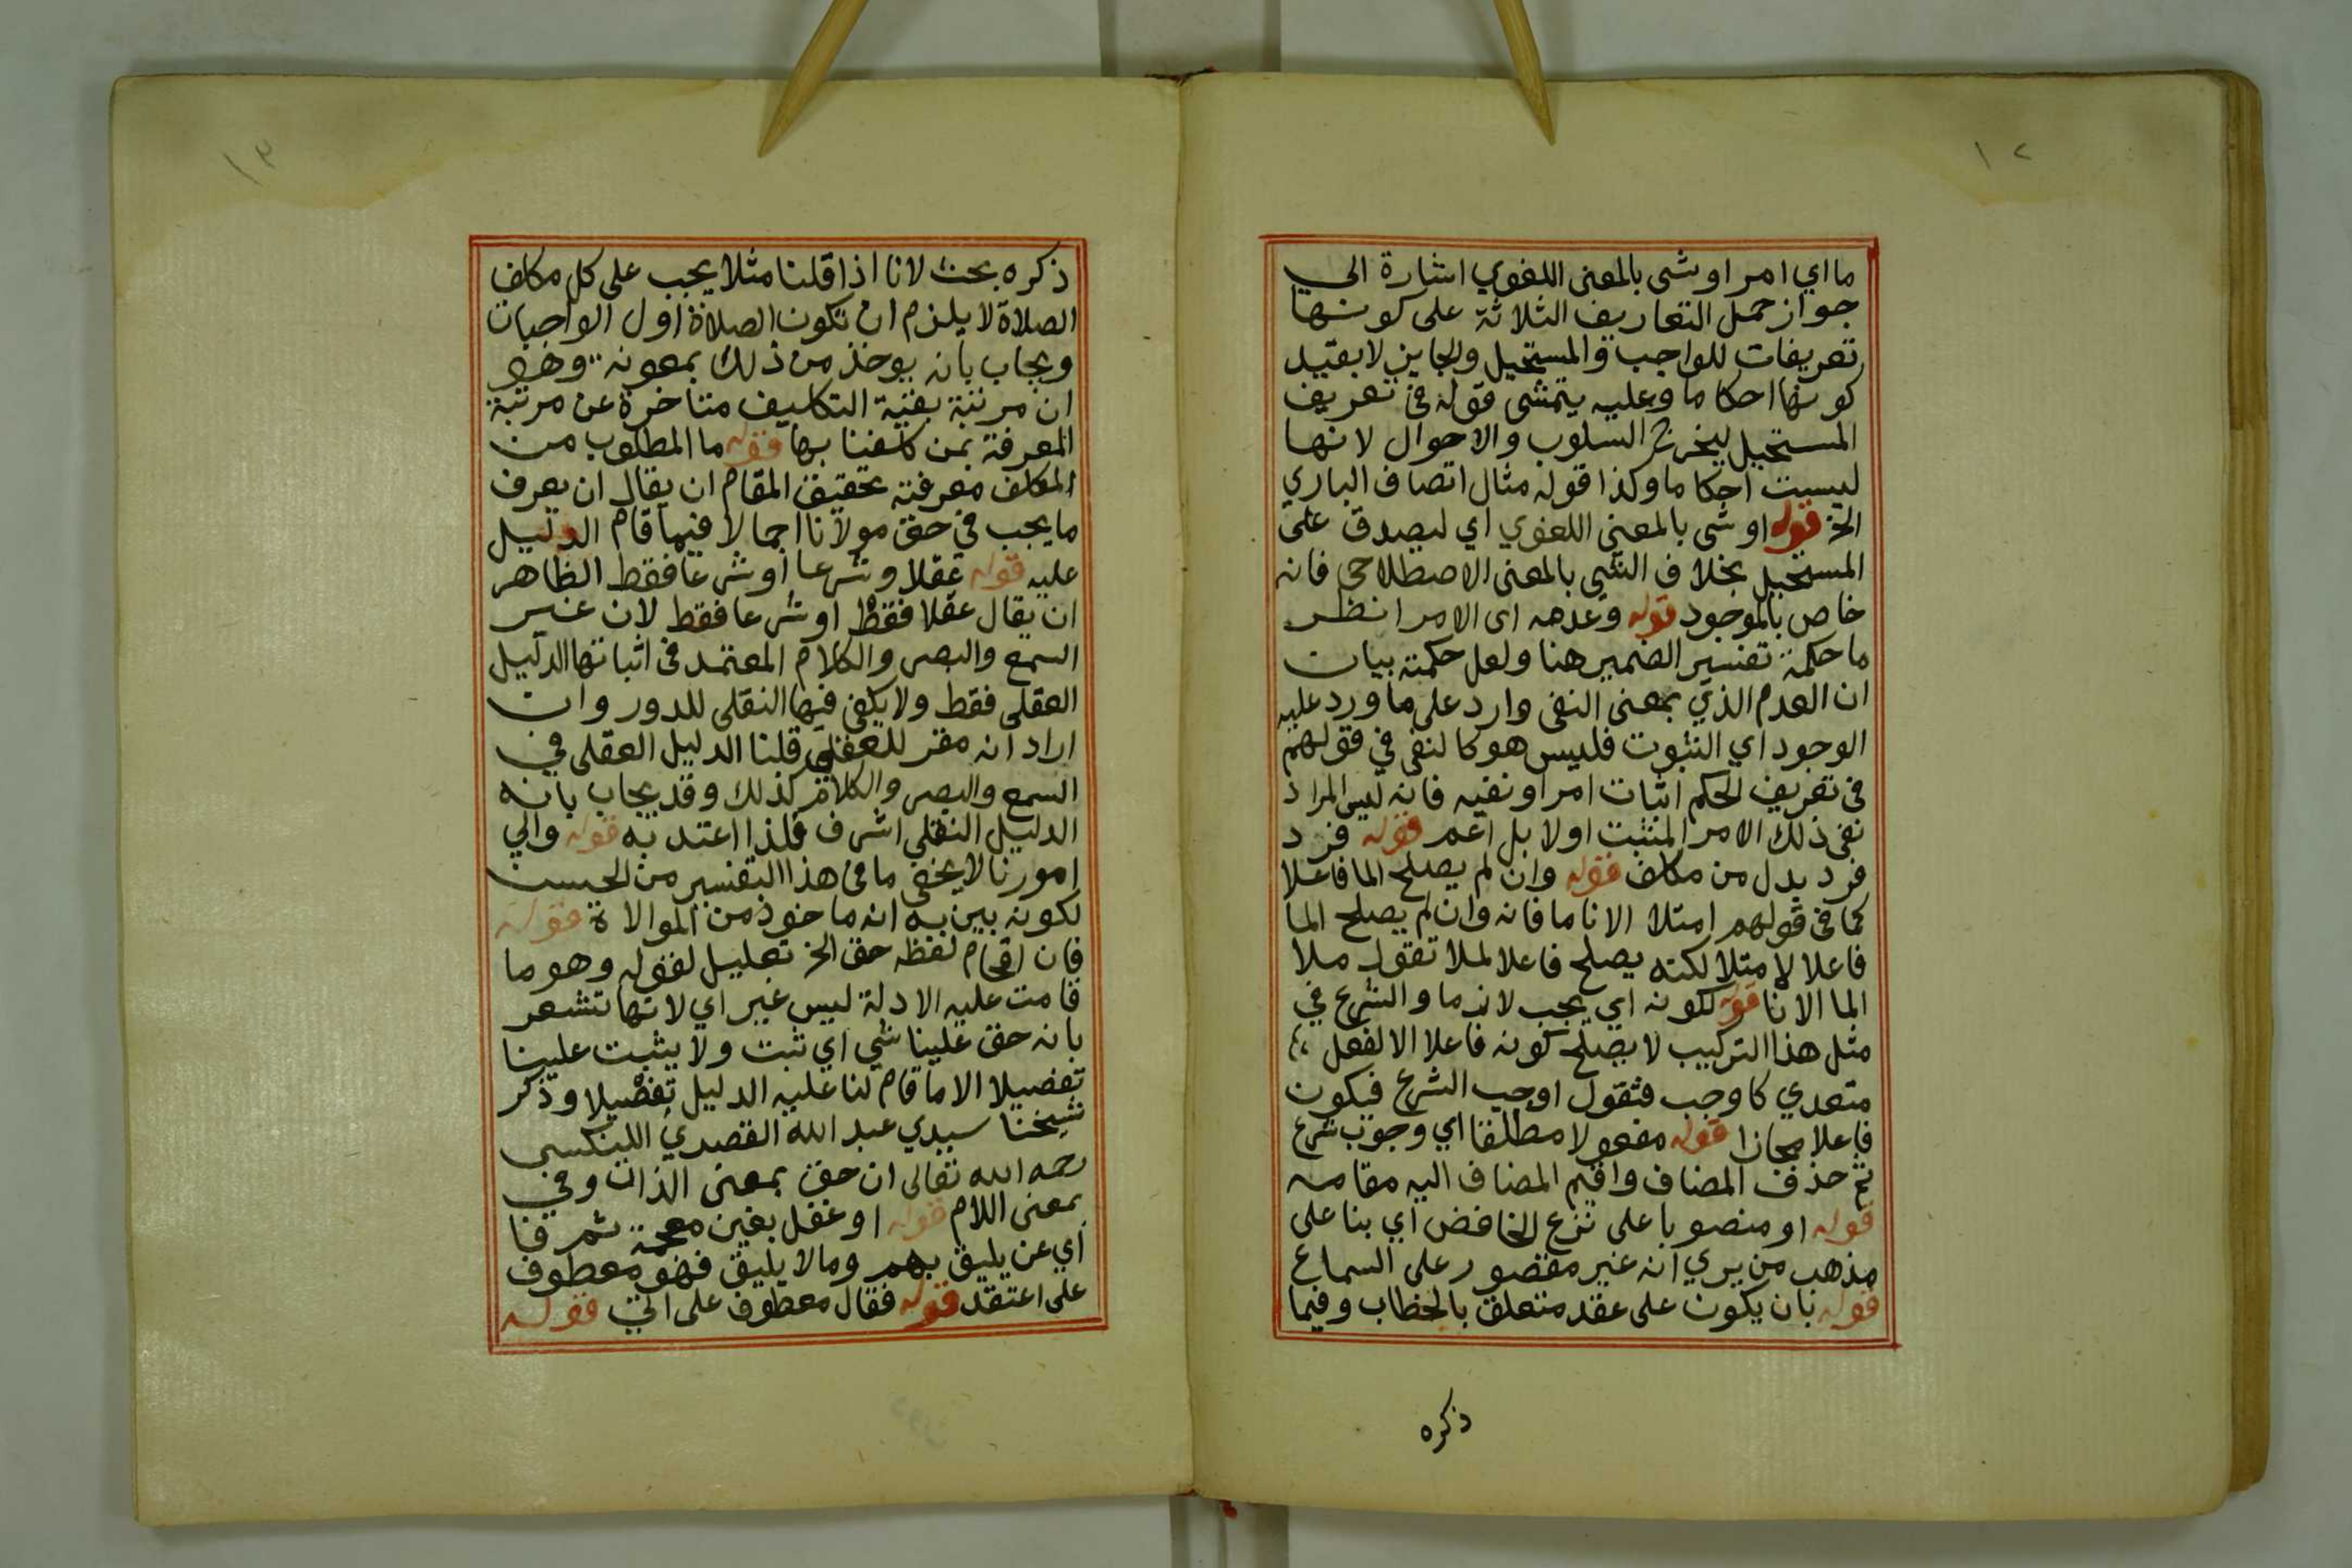 ١٢
ما اي امر او شى بالمعنى اللغوي اشارة الى
جواز حمل التعاريف الثلاثة على كونها
تعريفات للواجب والمستحيل والجايز لا بقيد
كونها احكاما وعليه يتمشى قوله في تعريف
المستحيل ليخرج السلوب والاحوال لانها
ليست احكاما وكذا قوله مثال اتصاف الباري
الخ قوله او شى بالمعنى اللغوي اي ليصدق على
المستحيل بخلاف الشى بالمعنى الاصطلاحى فانه
خاص بالموجود قوله وعدمه اى الامر انظر
ما حكمة تفسير الضمير هنا ولعل حكمته بيان
ان العدم الذي بمعنى النفى وارد على ما ورد عليه
الوجود اي الثبوت فليس هو كالنفى في قولهم
فى تعريف الحكم اثبات امر او نفيه فانه ليس المراد
نفى ذلك الامر المثبت اولا بل اعم قوله فرد
فرد بدل من مكلف قوله وان لم يصلح الما فاعلا
كما فى قولهم امتلا الانا ما فانه وان لم يصلح الما
فاعلا لامتلا لكنه يصلح فاعلا لملا تقول ملا
الما الانا قوله لكونه اي يجب لازما والشرع في
مثل هذا التركيب لا يصلح كونه فاعلا الا لفعل
متعدي كاوجب فتقول اوجب الشرع فيكون
فاعلا مجازا قوله مفعولا مطلقا اي وجوب شرع
ثم حذف المضاف واقيم المضاف اليه مقامه
قوله او منصوبا على نزع الخافض اي بنا على
مذهب من يري انه غير مقصور على السماع
قوله بان يكون على عقد متعلق بالخطاب وفيما
ذكره
١٣
ذكره بحث لانا اذا قلنا مثلا يجب على كل مكلف
الصلاة لا يلزم ان تكون الصلاة اول الواجبات
ويجاب بانه يوخذ من ذلك بمعونة وهو
ان مرتبة بقية التكاليف متاخرة عن مرتبة
المعرفة بمن كلفنا بها قوله ما المطلوب من
المكلف معرفته تحقيق المقام ان يقال ان يعرف
ما يجب في حق مولانا اجمالا فيما قام الدليل
عليه قوله عقلا وشرعا او شرعا فقط الظاهر
ان يقال عقلا فقط او شرعا فقط لان غير
السمع والبصر والكلام المعتمد فى اثباتها الدليل
العقلى فقط ولا يكفى فيها النقلى للدور وان
اراد انه مقر للعقلى قلنا الدليل العقلى في
السمع والبصر والكلام كذلك وقد يجاب بانه
الدليل النقلي اشرف فلذا اعتد به قوله والي
امورنا لا يخفى ما فى هذا التفسير من الحسن
لكونه بين به انه ماخوذ من الموالاة قوله
فان اقحام لفظه حق الخ تعليل لقوله وهو ما
قامت عليه الادلة ليس غير اي لانها تشعر
بانه حق علينا شي اي ثبت ولا يثبت علينا
تفصيلا الا ما قام لنا عليه الدليل تفصيلا وذكر
شيخنا سيدي عبد الله القصدي
رحمه الله تعالى ان حق بمعنى الذات وفي
بمعنى اللام قوله او غفل بغين معجمة ثم فا
اي عن يليق بهم وما لا يليق فهو معطوف
على اعتقد قوله فقال معطوف على الى قوله